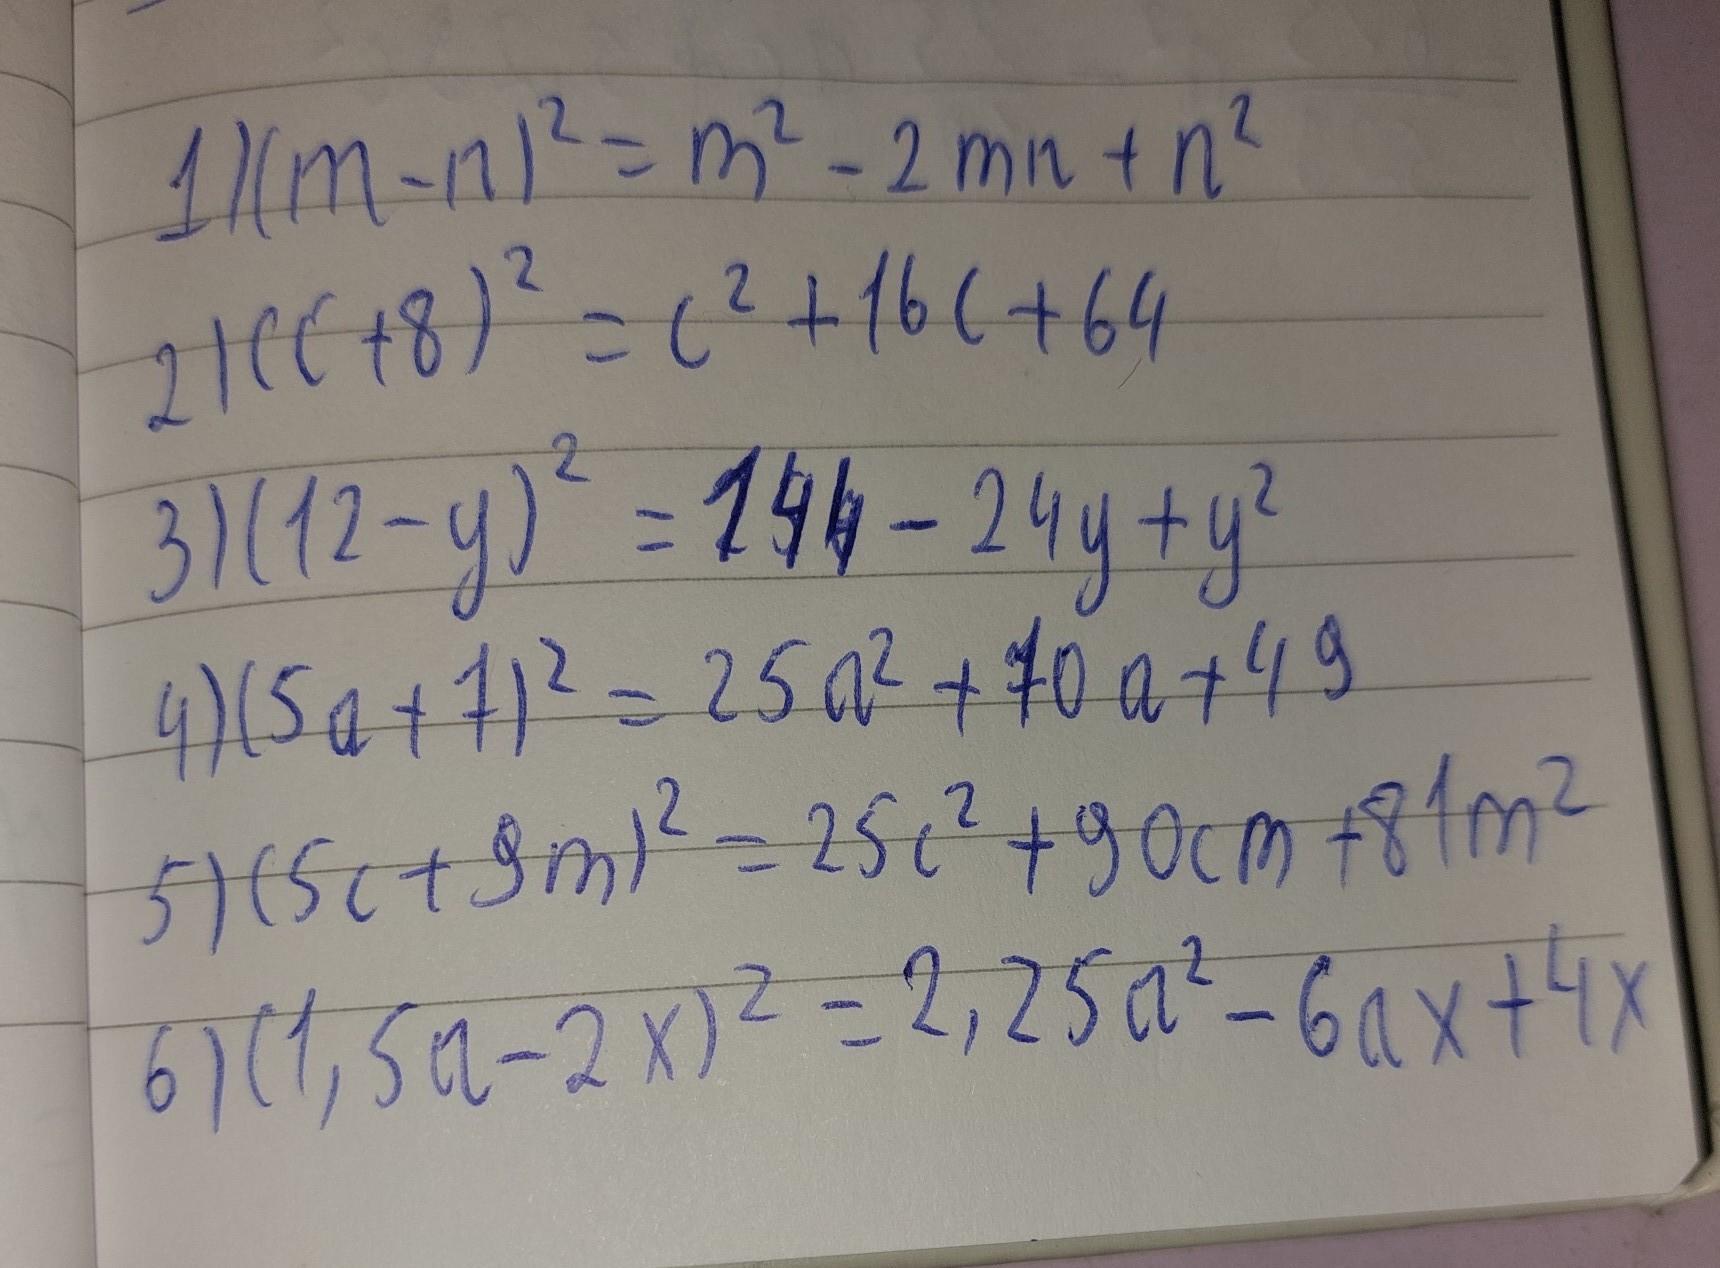 1)(m-n)² = m² - 2mn + n²
2)(c+8)² = c² + 16c + 64
3)(12-y)² = 144 - 24y + y²
4)(5a+7)² = 25a² + 70a + 49
5)(5c+9m)² = 25c² + 90cm + 81m²
6)(1,5a-2x)² = 2,25a² - 6ax + 4x